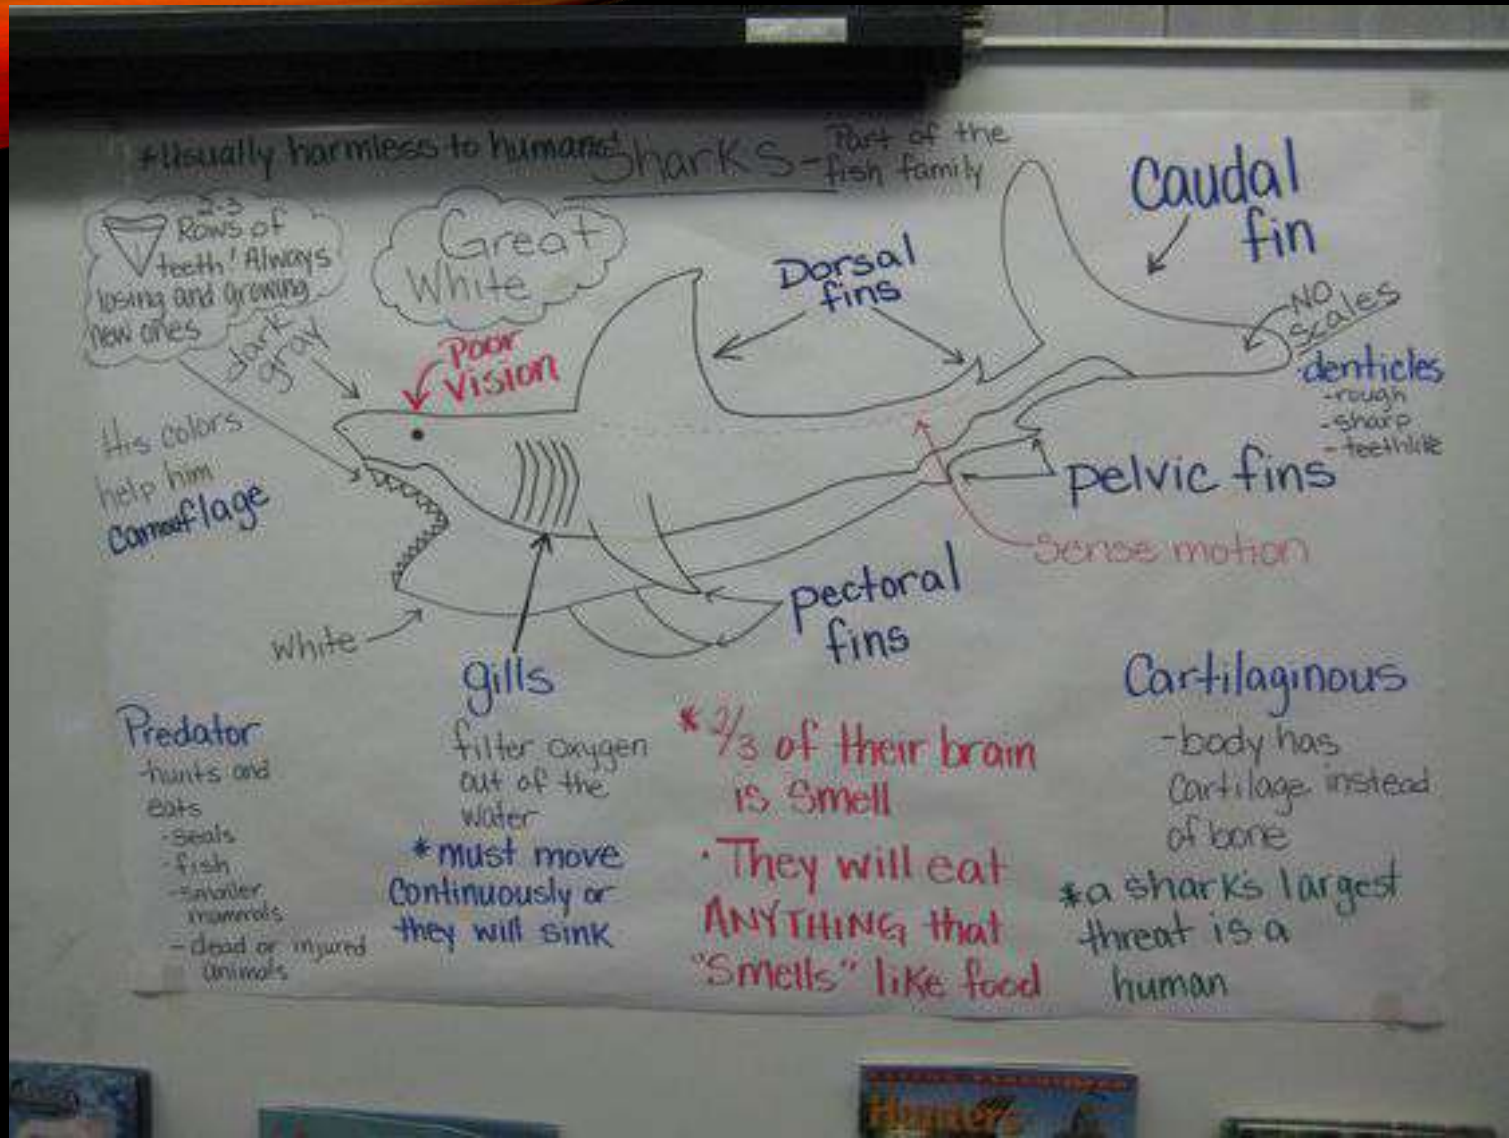 *Usually harmless to humans!
Sharks - Part of the
fish family
2-3
Rows of
teeth! Always
losing and growing
new ones
Great
White
dark
gray
Poor
Vision
Dorsal
fins
Caudal
fin
NO
scales
denticles
-rough
-sharp
-teethlike
His colors
help him
Camouflage
Pelvic fins
Sense motion
pectoral
fins
White
gills
filter oxygen
out of the
water
*must move
Continuously or
they will sink
Predator
-hunts and
eats
-seals
-fish
-smaller
mammals
-dead or injured
animals
*2/3 of their brain
is Smell
·They will eat
ANYTHING that
"Smells" like food
Cartilaginous
-body has
Cartilage instead
of bone
*a shark's largest
threat is a
human
Hunters